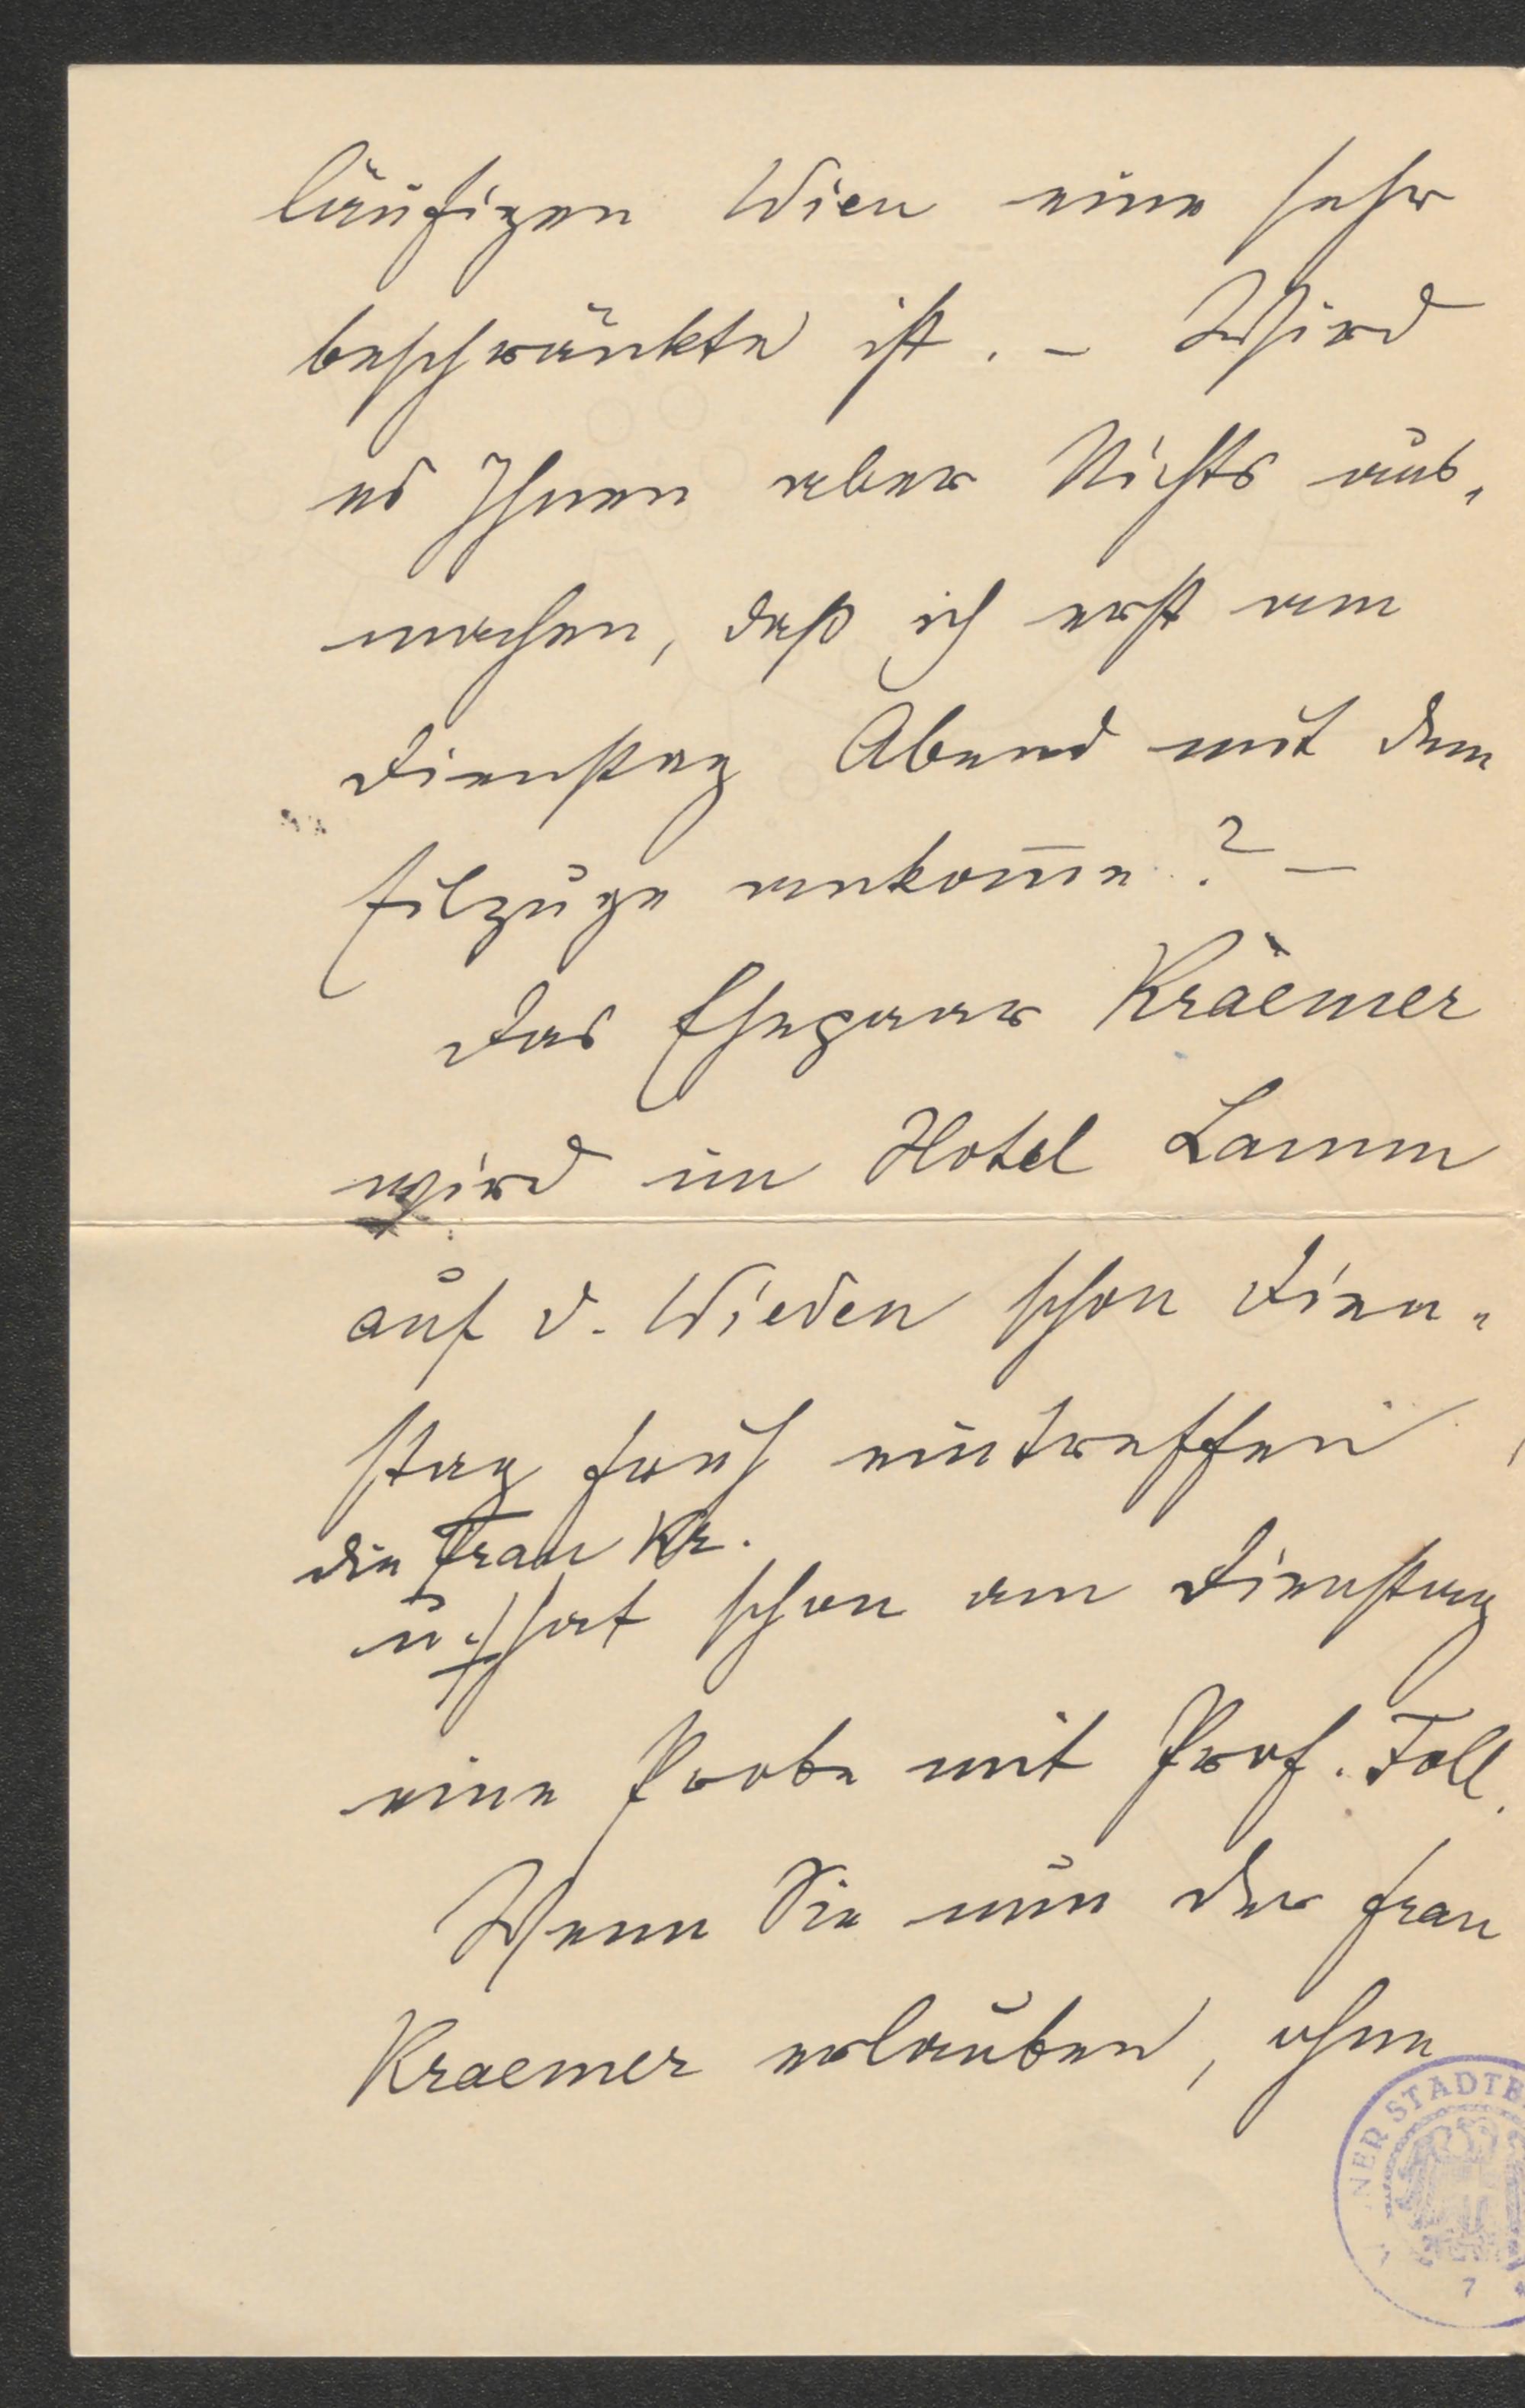 läufigen Wien eine sehr
beschränkte ist. – Wird
es Ihnen aber Nichts aus„
machen, daß ich erst am
Dienstag Abend mit dem
Eilzuge ankom̄e? –
Das Ehepaar Kraemer
wird im Hotel Lamm
auf d. Wieden schon Dien„
stag früh eintreffen
die Frau Kr.
u. hat schon am Dienstag
eine Probe mit Prof. Foll.
Wenn Sie nun der Frau
Kraemer erlauben, ohne
NER STADTB
7